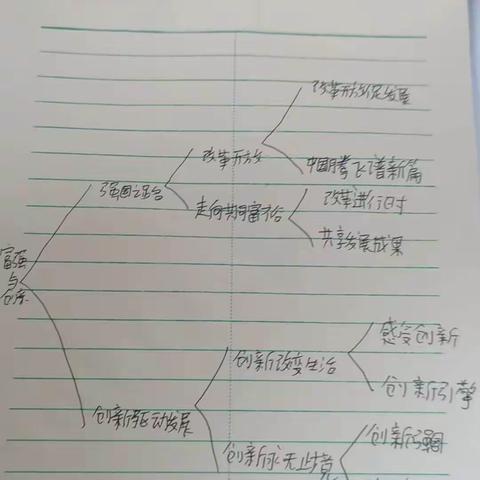 改革开放促发展
改革开放
中国腾飞谱新篇
强国之路
改革进行时
走向共同富裕
共享发展成果
富强
与
创新
感受创新
创新改变生活
创新引擎
创新驱动发展
创新强国
创新永无止境